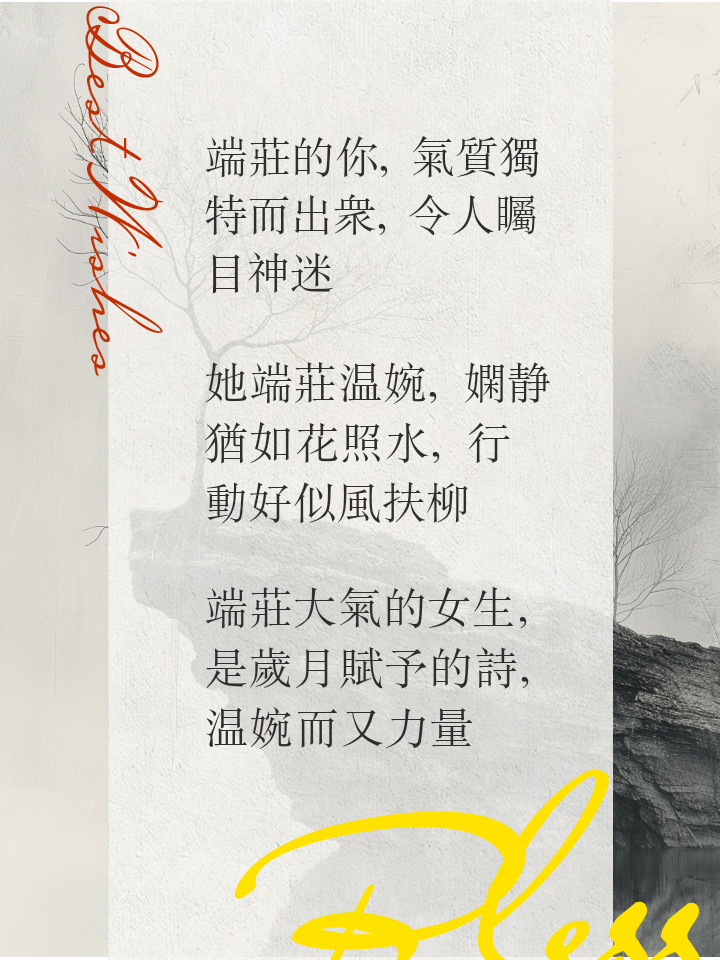 Best Wishes
端莊的你, 氣質獨
特而出衆, 令人矚
目神迷
她端莊温婉, 嫻静
猶如花照水, 行
動好似風扶柳
端莊大氣的女生,
是歲月賦予的詩,
温婉而又力量
Bless